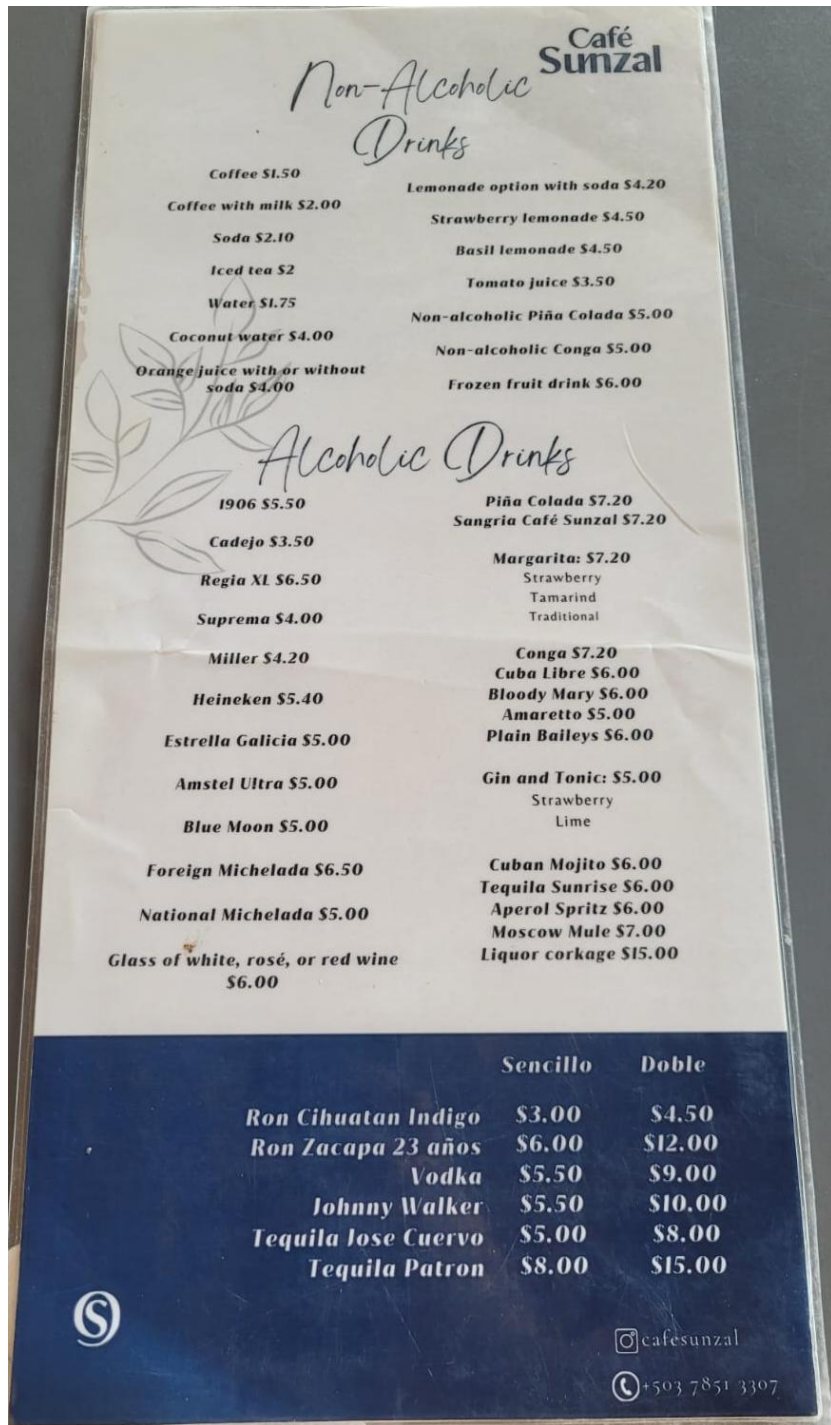 Café
Sunzal
Non-Alcoholic
Drinks
Coffee $1.50
Coffee with milk $2.00
Soda $2.10
Iced tea $2
Water $1.75
Coconut water $4.00
Orange juice with or without
soda $4.00
Lemonade option with soda $4.20
Strawberry lemonade $4.50
Basil lemonade $4.50
Tomato juice $3.50
Non-alcoholic Piña Colada $5.00
Non-alcoholic Conga $5.00
Frozen fruit drink $6.00
Alcoholic Drinks
1906 $5.50
Cadejo $3.50
Regia XL $6.50
Suprema $4.00
Miller $4.20
Heineken $5.40
Estrella Galicia $5.00
Amstel Ultra $5.00
Blue Moon $5.00
Foreign Michelada $6.50
National Michelada $5.00
Glass of white, rosé, or red wine
$6.00
Piña Colada $7.20
Sangria Café Sunzal $7.20
Margarita: $7.20
Strawberry
Tamarind
Traditional
Conga $7.20
Cuba Libre $6.00
Bloody Mary $6.00
Amaretto $5.00
Plain Baileys $6.00
Gin and Tonic: $5.00
Strawberry
Lime
Cuban Mojito $6.00
Tequila Sunrise $6.00
Aperol Spritz $6.00
Moscow Mule $7.00
Liquor corkage $15.00
Sencillo Doble
Ron Cihuatan Indigo $3.00 $4.50
Ron Zacapa 23 años $6.00 $12.00
Vodka $5.50 $9.00
Johnny Walker $5.50 $10.00
Tequila Jose Cuervo $5.00 $8.00
Tequila Patron $8.00 $15.00
cafesunzal
+503 7851 3307